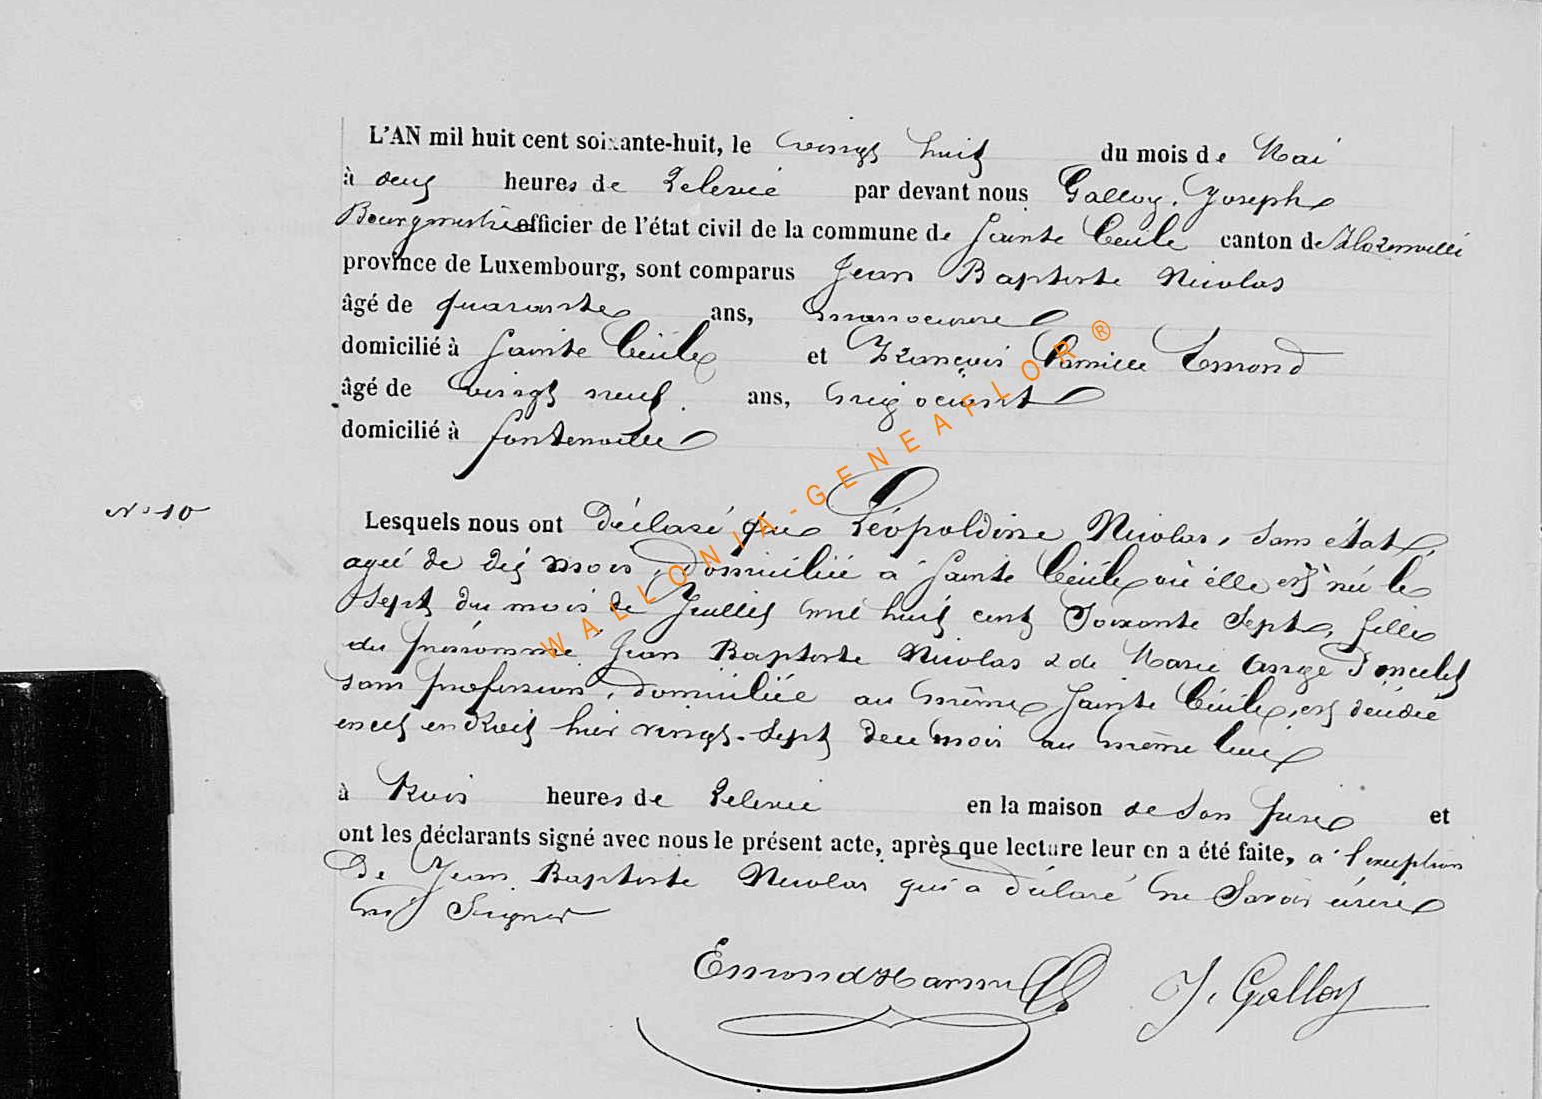 L'AN mil huit cent soixante-huit, le vingt huit du mois de Mai
à deux heures de Relevée par devant nous Galloy, Joseph
Bourgmestre officier de l'état civil de la commune de Sainte Cécile canton de Florenville
province de Luxembourg, sont comparus Jean Baptiste Nicolas
âgé de quarante ans, manoeuvre
domicilié à Sainte Cécile et François Camille Emond
âgé de vingt neuf ans, négociant
domicilié à fontenoille
N° 10
Lesquels nous ont déclaré que Léopoldine Nicolas, sans état,
agée de dix mois, domiciliée à Sainte Cécile où elle est née le
sept du mois de Juillet mil huit cent Soixante Sept, fille
du prénommé Jean Baptiste Nicolas & de Marie Ange Poncelet
sans profession, domiciliée au même Sainte Cécile, est décédée
en cet endroit hier vingt-sept de ce mois au même lieu
à trois heures de Relevée en la maison de son père et
ont les déclarants signé avec nous le présent acte, après que lecture leur en a été faite, à l'exception
De Jean Baptiste Nicolas qui a déclaré ne Savoir écrire
ni Signer
Emond J. Galloy
WALLONIA-GENEAFLOR®